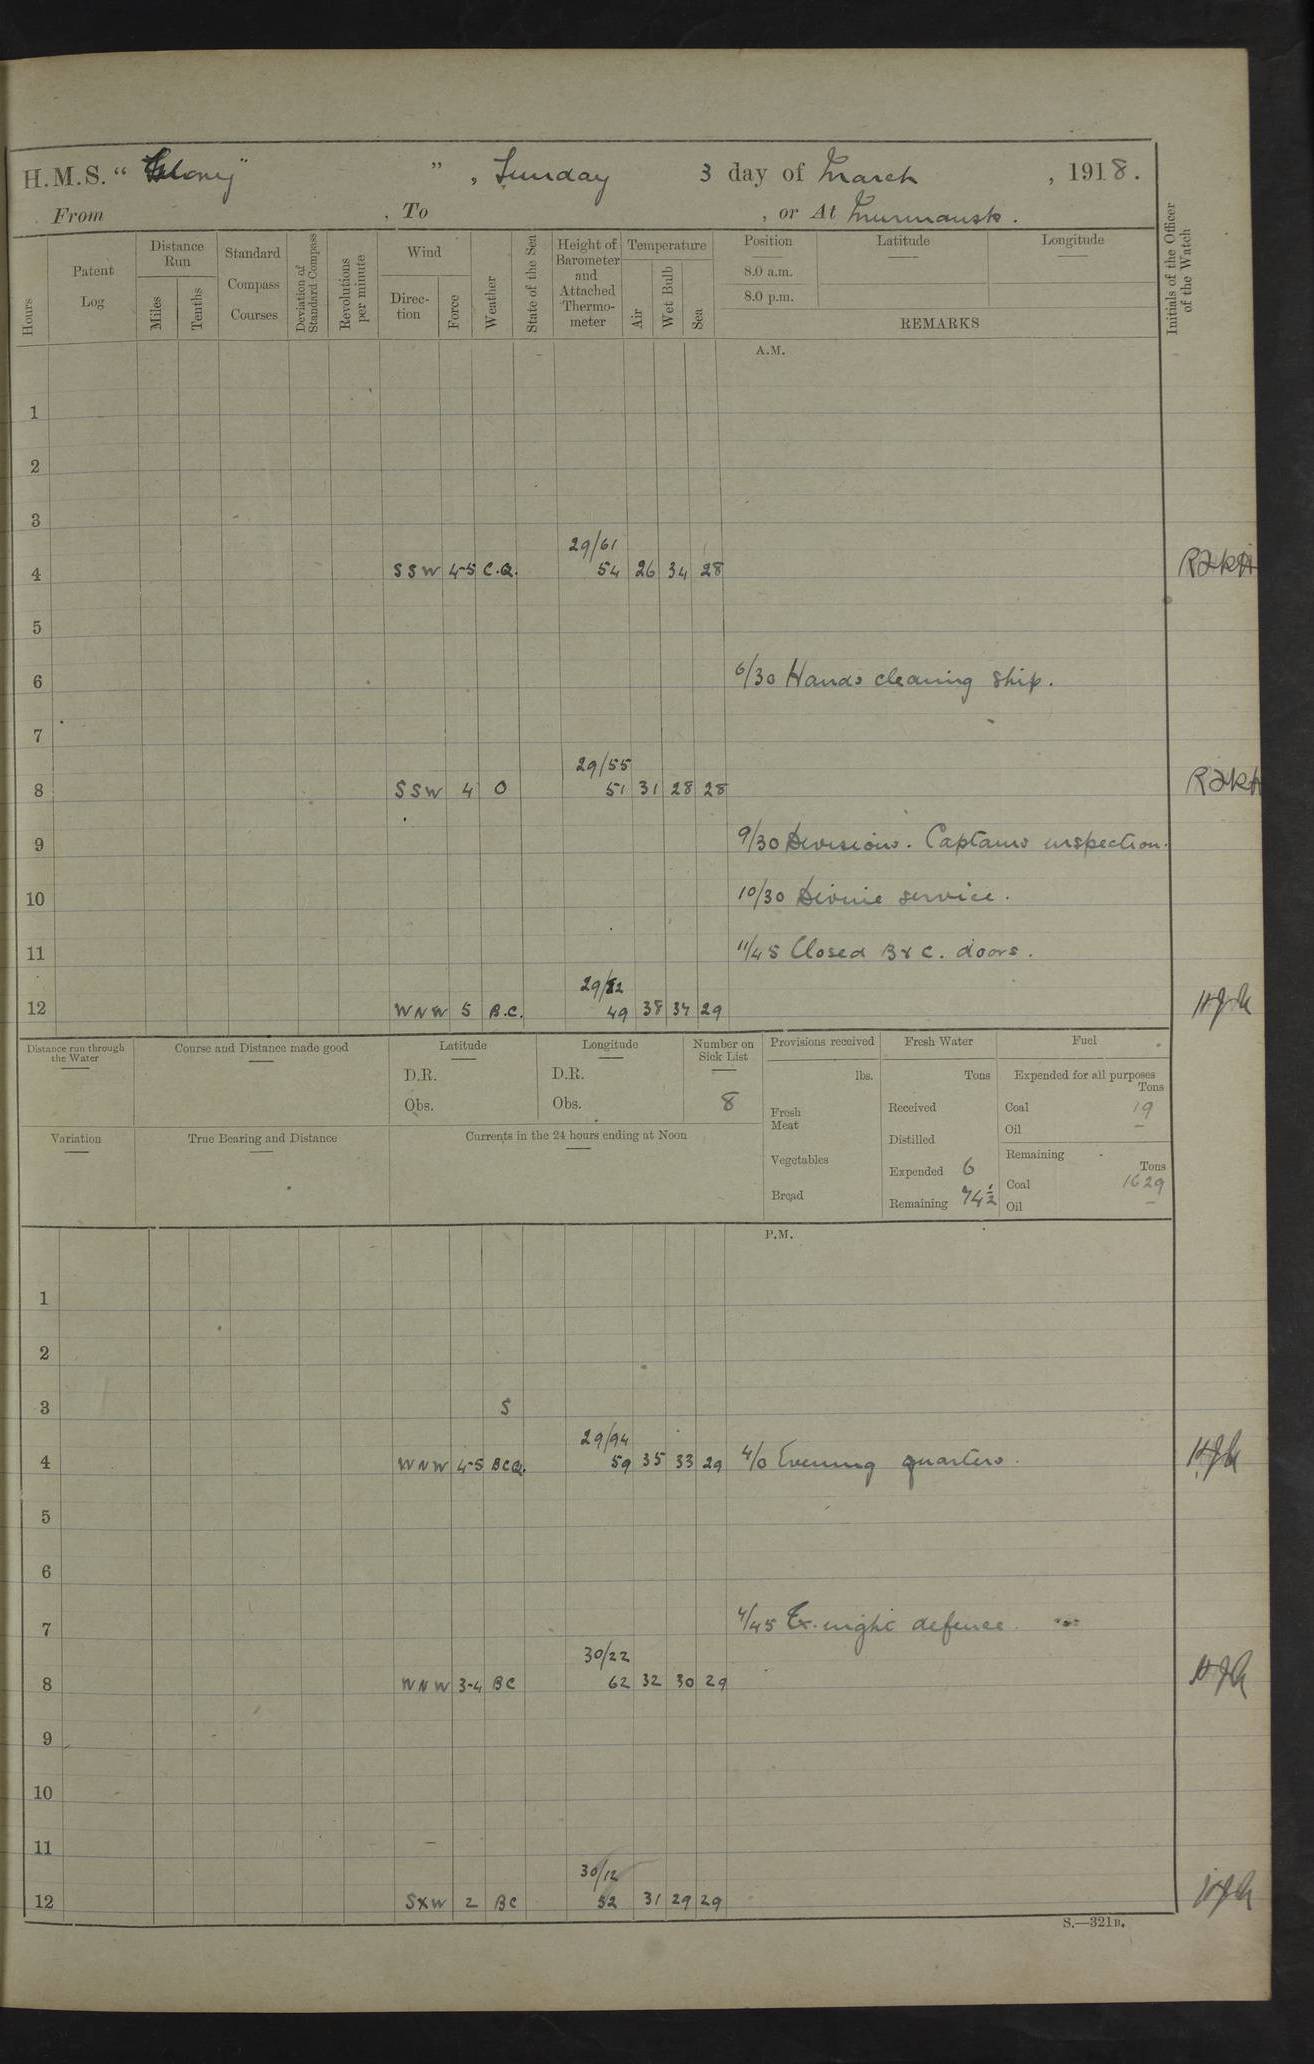 H.M.S. " Glory " , Sunday 3 day of March , 1918.
From , To , or At Murmansk.
Hours
Patent Log
Distance Run
Miles
Tenths
Standard Compass Courses
Deviation of Standard Compass
Revolutions per minute
Wind
Direc-tion
Force
Weather
State of the Sea
Height of Barometer and Attached Thermo-meter
Temperature
Air
Wet Bulb
Sea
Position
8.0 a.m.
8.0 p.m.
Latitude
Longitude
REMARKS
Initials of the Officer of the Watch
A.M.
1
2
3
29/61
4 SSW 4-5 C.Q. 54 26 34 28
5
6 6/30 Hands cleaning ship.
7
29/55
8 SSW 4 O 51 31 28 28
9 9/30 Divisions. Captains inspection.
10 10/30 Divine service.
11 11/45 Closed B & C. doors.
12 WNW 5 B.C. 49 38 34 29
Distance run through the Water
Course and Distance made good
Latitude
D.R.
Obs.
Longitude
D.R.
Obs.
Number on Sick List
8
Variation
True Bearing and Distance
Currents in the 24 hours ending at Noon
Provisions received
lbs.
Fresh Meat
Vegetables
Bread
Fresh Water
Tons
Received
Distilled
Expended 6
Remaining 74½
Fuel
Expended for all purposes
Tons
Coal 19
Oil –
Remaining
Tons
Coal 1629
Oil –
P.M.
1
2
3 S
29/94
4 WNW 4-5 BCQ. 59 35 33 29 4/0 Evening quarters.
5
6
7 4/45 Ex. night defence.
30/22
8 WNW 3-4 BC 62 32 30 29
9
10
11
30/12
12 SXW 2 BC 52 31 29 29
S.—321B.